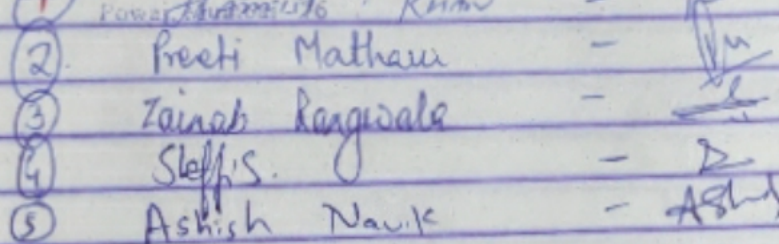 Khan
② Preeti Mathau -
③ Zainab Rangwala -
④ Steffi S. -
⑤ Ashish Navik - Ash